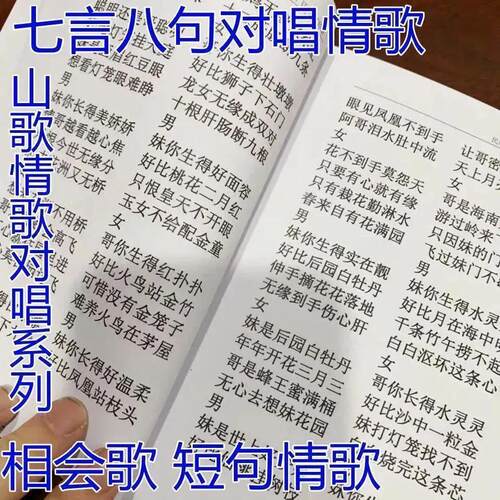 七言八句对唱情歌
山歌情歌对唱系列
想看灯笼眼难睁
男
妹你长得美娇娇
男
妹你生得壮墩墩
好比狮子下石门
龙女无缘成双对
十根肝肠断九根
男
妹你生得好面容
好比桃花二月红
只恨皇天不开眼
玉女不给配金童
女
哥你生得红扑扑
好比火鸟站金竹
可惜没有金笼子
难养火鸟在茅屋
男
妹你长得好温柔
好比凤凰站枝头
眼见凤凰不到手
阿哥泪水肚中流
女
花不到手莫怨天
只要有心就有缘
只有栽花勤淋水
春来自有花满园
男
妹你生得实在靓
好比后园白牡丹
伸手摘花花落地
无缘到手伤心肝
女
妹是后园白牡丹
年年开花三月三
哥是蜂王蜜满桶
无心去想妹花园
男
女
游过岭来
只因妹的门
飞过妹门不
男
妹你生得水灵
好比月在海中
千条竹竿捞不
白白沤坏这条心
女
哥你长得水灵灵
好比沙中一粒金
妹打灯笼找不到
相会歌 短句情歌